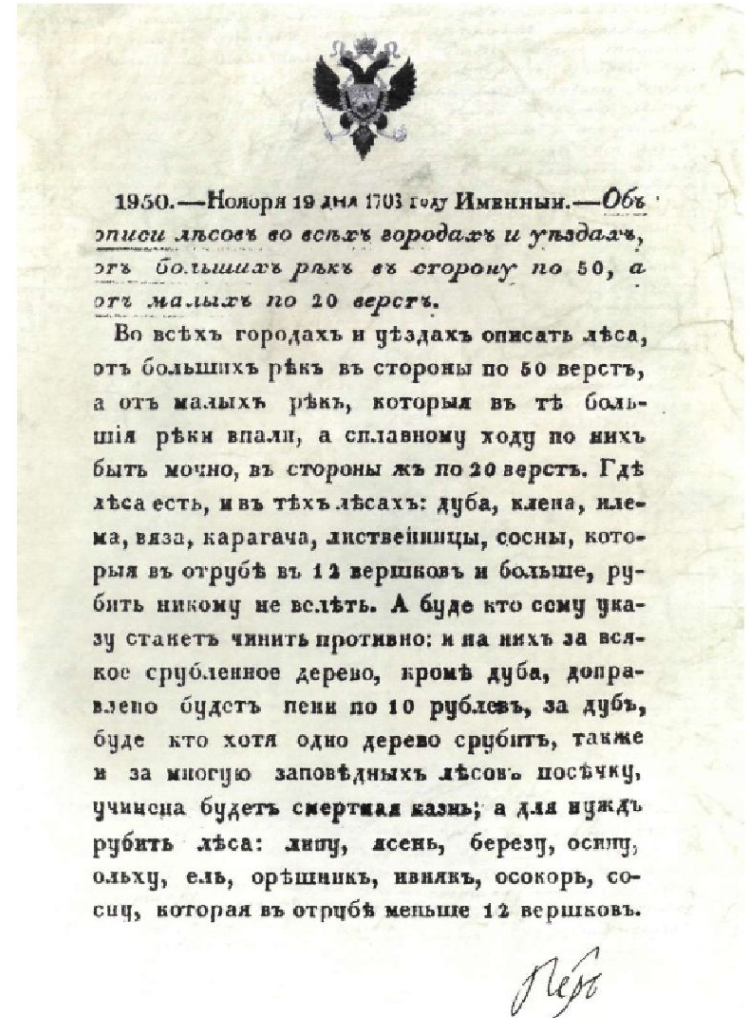 1950.—Ноября 19 дня 1703 году Именный.—Объ
описи лѣсовъ во всѣхъ городахъ и уѣздахъ,
отъ большихъ рѣкъ въ сторону по 50, а
отъ малыхъ по 20 верстъ.
Во всѣхъ городахъ и уѣздахъ описать лѣса,
отъ большихъ рѣкъ въ стороны по 50 верстъ,
а отъ малыхъ рѣкъ, которыя въ тѣ боль-
шія рѣки впали, а сплавному ходу по нихъ
быть мочно, въ стороны жъ по 20 верстъ. Гдѣ
лѣса есть, и въ тѣхъ лѣсахъ: дуба, клена, иле-
ма, вяза, карагача, лиственницы, сосны, кото-
рыя въ отрубѣ въ 12 вершковъ и больше, ру-
бить никому не велѣть. А буде кто сему ука-
зу станетъ чинить противно: и на нихъ за вся-
кое срубленное дерево, кромѣ дуба, допра-
влено будетъ пени по 10 рублевъ, за дубъ,
буде кто хотя одно дерево срубитъ, также
и за многую заповѣдныхъ лѣсовъ посѣчку,
учинена будетъ смертная казнь; а для нуждъ
рубить лѣса: липу, ясень, березу, осину,
ольху, ель, орѣшникъ, ивнякъ, осокорь, со-
сну, которая въ отрубѣ меньше 12 вершковъ.